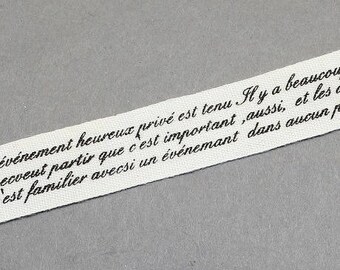 événement heureux privé est tenu Il y a beaucou
ecveut partir que c'est important ,aussi, et les
'est familier avecsi un événemant dans aucun p